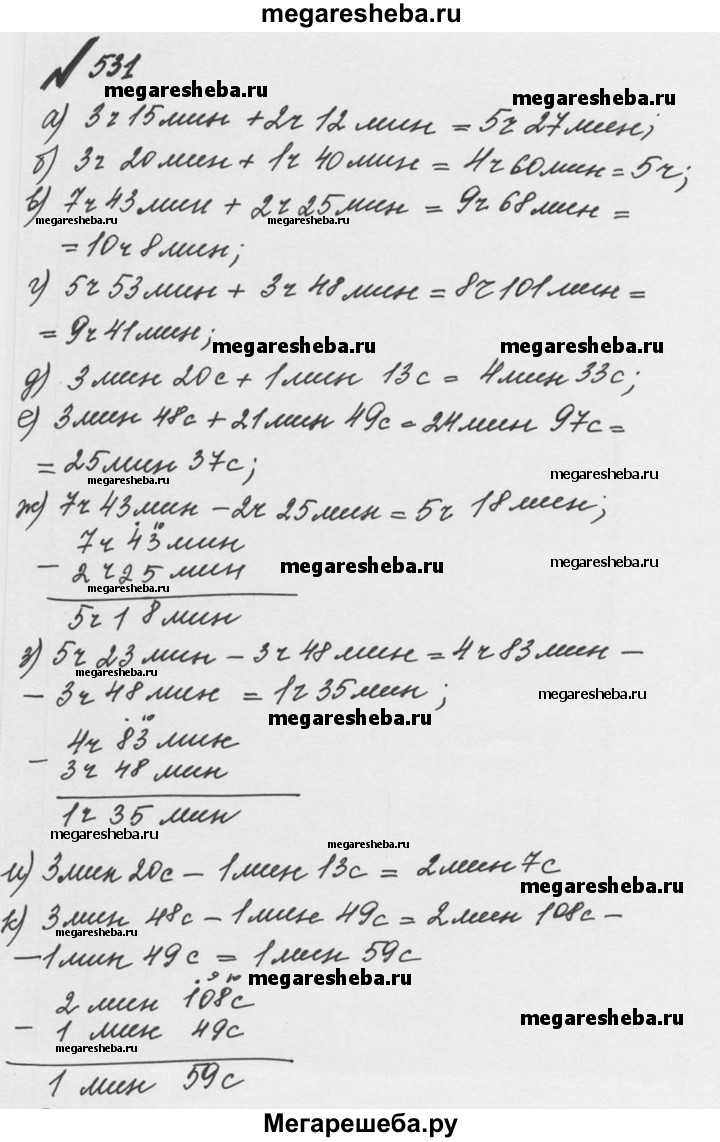 megaresheba.ru
№ 531
megaresheba.ru megaresheba.ru
а) 3ч 15мин + 2ч 12мин = 5ч 27мин;
б) 3ч 20мин + 1ч 40мин = 4ч 60мин = 5ч;
в) 7ч 43мин + 2ч 25мин = 9ч 68мин =
megaresheba.ru megaresheba.ru
= 10ч 8мин;
г) 5ч 53мин + 3ч 48мин = 8ч 101мин =
= 9ч 41мин;
megaresheba.ru megaresheba.ru
д) 3мин 20с + 1мин 13с = 4мин 33с;
е) 3мин 48с + 21мин 49с = 24мин 97с =
= 25мин 37с;
megaresheba.ru megaresheba.ru
ж) 7ч 43мин - 2ч 25мин = 5ч 18мин;
. 10
7ч 43мин
- 2ч 25мин
megaresheba.ru megaresheba.ru megaresheba.ru
5ч 18мин
з) 5ч 23мин - 3ч 48мин = 4ч 83мин -
- 3ч 48мин = 1ч 35мин;
megaresheba.ru megaresheba.ru megaresheba.ru
. 10
4ч 83мин
- 3ч 48мин
1ч 35мин
megaresheba.ru megaresheba.ru
и) 3мин 20с - 1мин 13с = 2мин 7с
megaresheba.ru
к) 3мин 48с - 1мин 49с = 2мин 108с -
megaresheba.ru
- 1мин 49с = 1мин 59с
megaresheba.ru
. 9 10
2 мин 108с
- 1 мин 49с
megaresheba.ru megaresheba.ru
1 мин 59с
Мегарешеба.ру